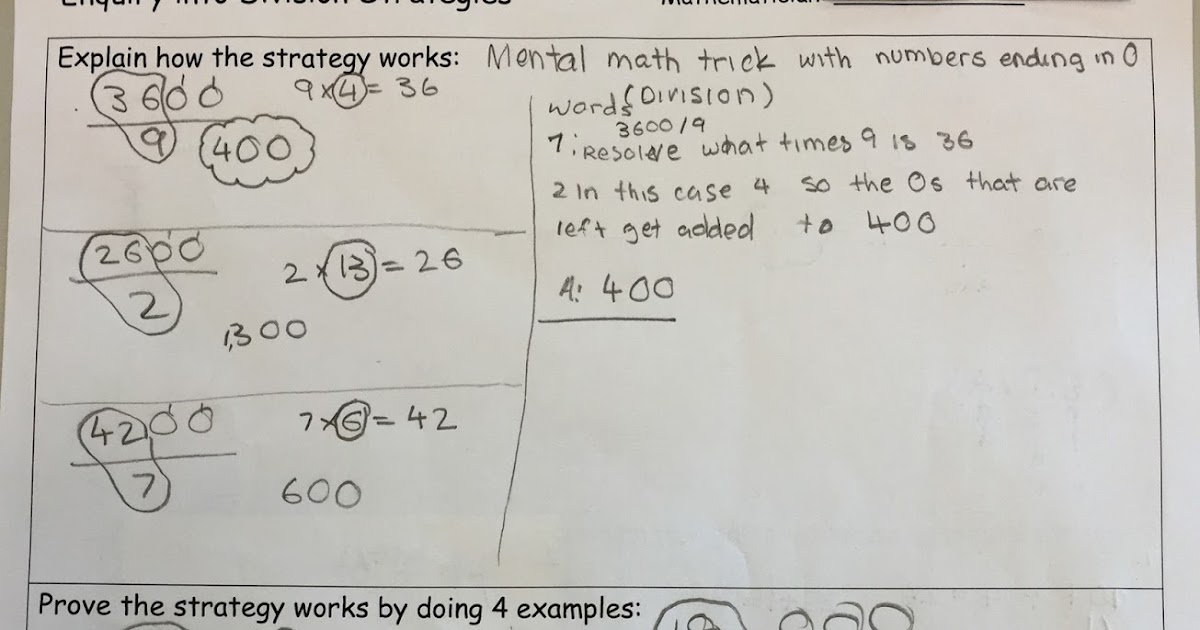 Enquiry into Division Strategies
Mathematician
Explain how the strategy works: Mental math trick with numbers ending in 0
(Division)
3600
9
400
9x4= 36
2600
2
2x13= 26
1,300
4200
7
7x6= 42
600
words
3600/9
1: Resolve what times 9 is 36
2 In this case 4 so the 0s that are
left get added to 400
A: 400
Prove the strategy works by doing 4 examples: